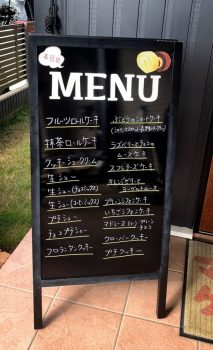 本日の
MENU
フルーツロールケーキ
抹茶ロールケーキ
クッキーシュークリーム
生シュー
生シュー(チョコミックス)
生シュー(コーヒーミックス)
プチシュー
チョコプチシュー
フロランタンクッキー
ぶどうのショートケーキ
ラズベリーとチョコの
ムースケーキ
スフレチーズケーキ
オレンジピール
ヨーグルトムース
プレーンシフォンケーキ
いちごシフォンケーキ
マドレーヌ プレーン
チョコ
クローバークッキー
プチクッキー